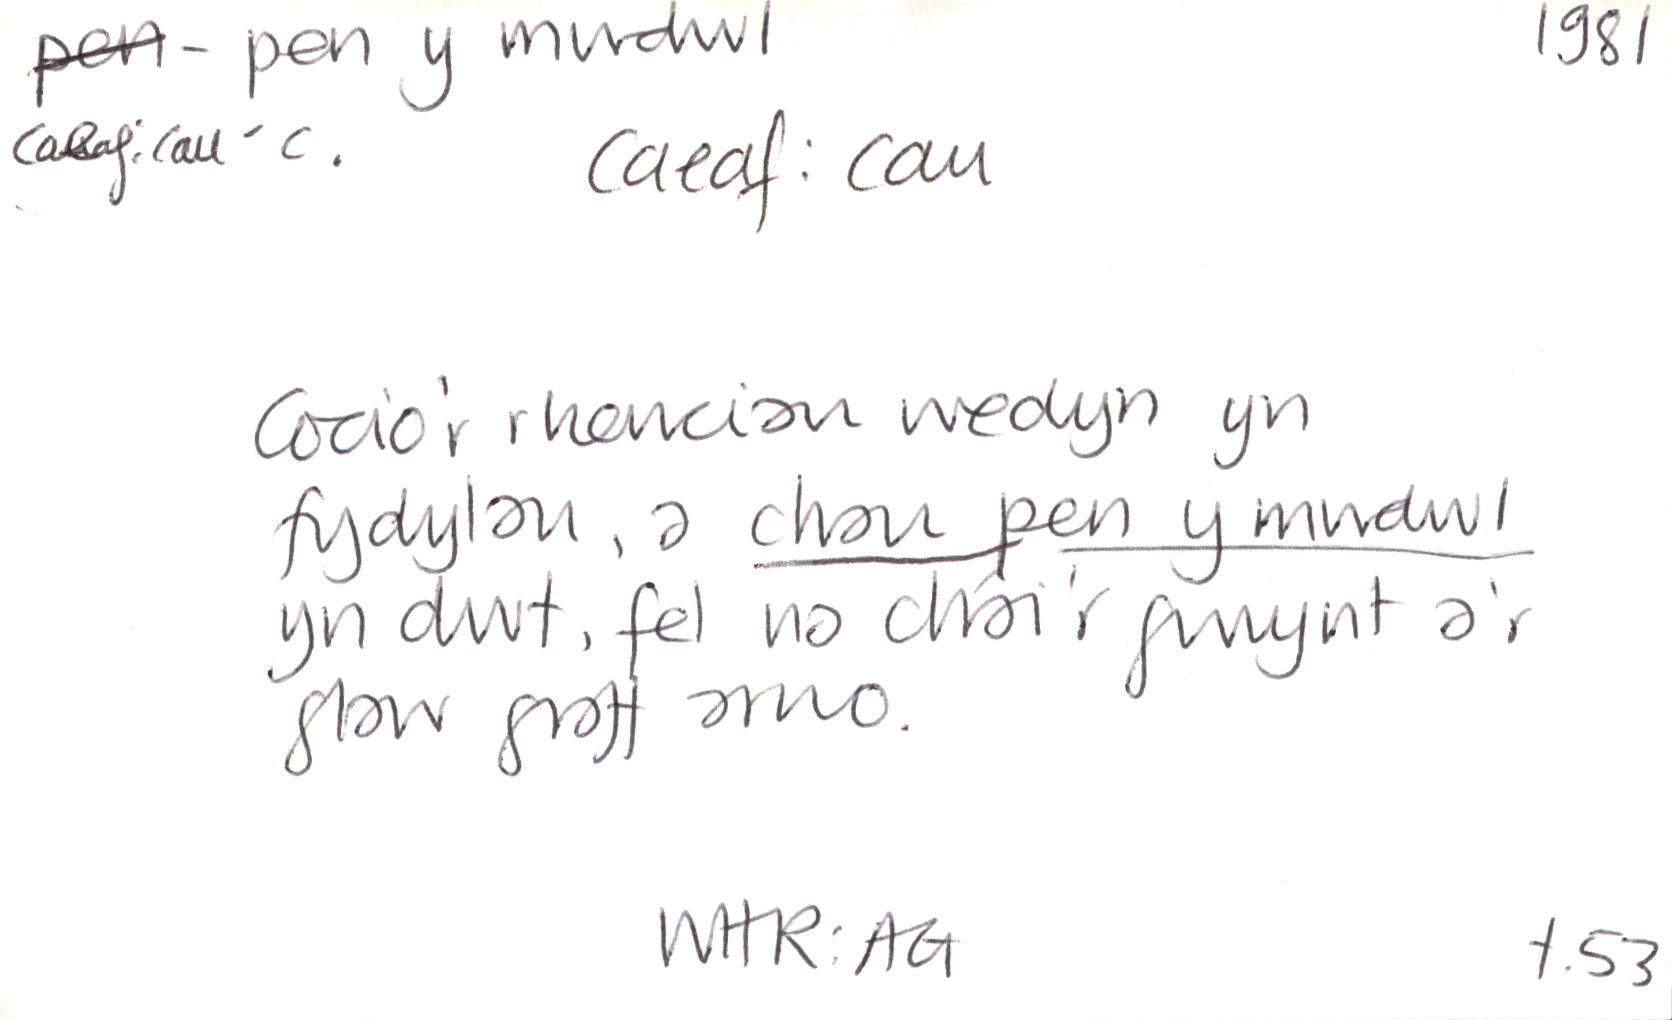 pen - pen y mwdwl 1981
caeaf: cau - c. caeaf: cau
Cocio'r rhenciau wedyn yn
fydylau, a chau pen y mwdwl
yn dwt, fel na châi'r gwynt a'r
glaw graff arno.
WHR: AG t.53